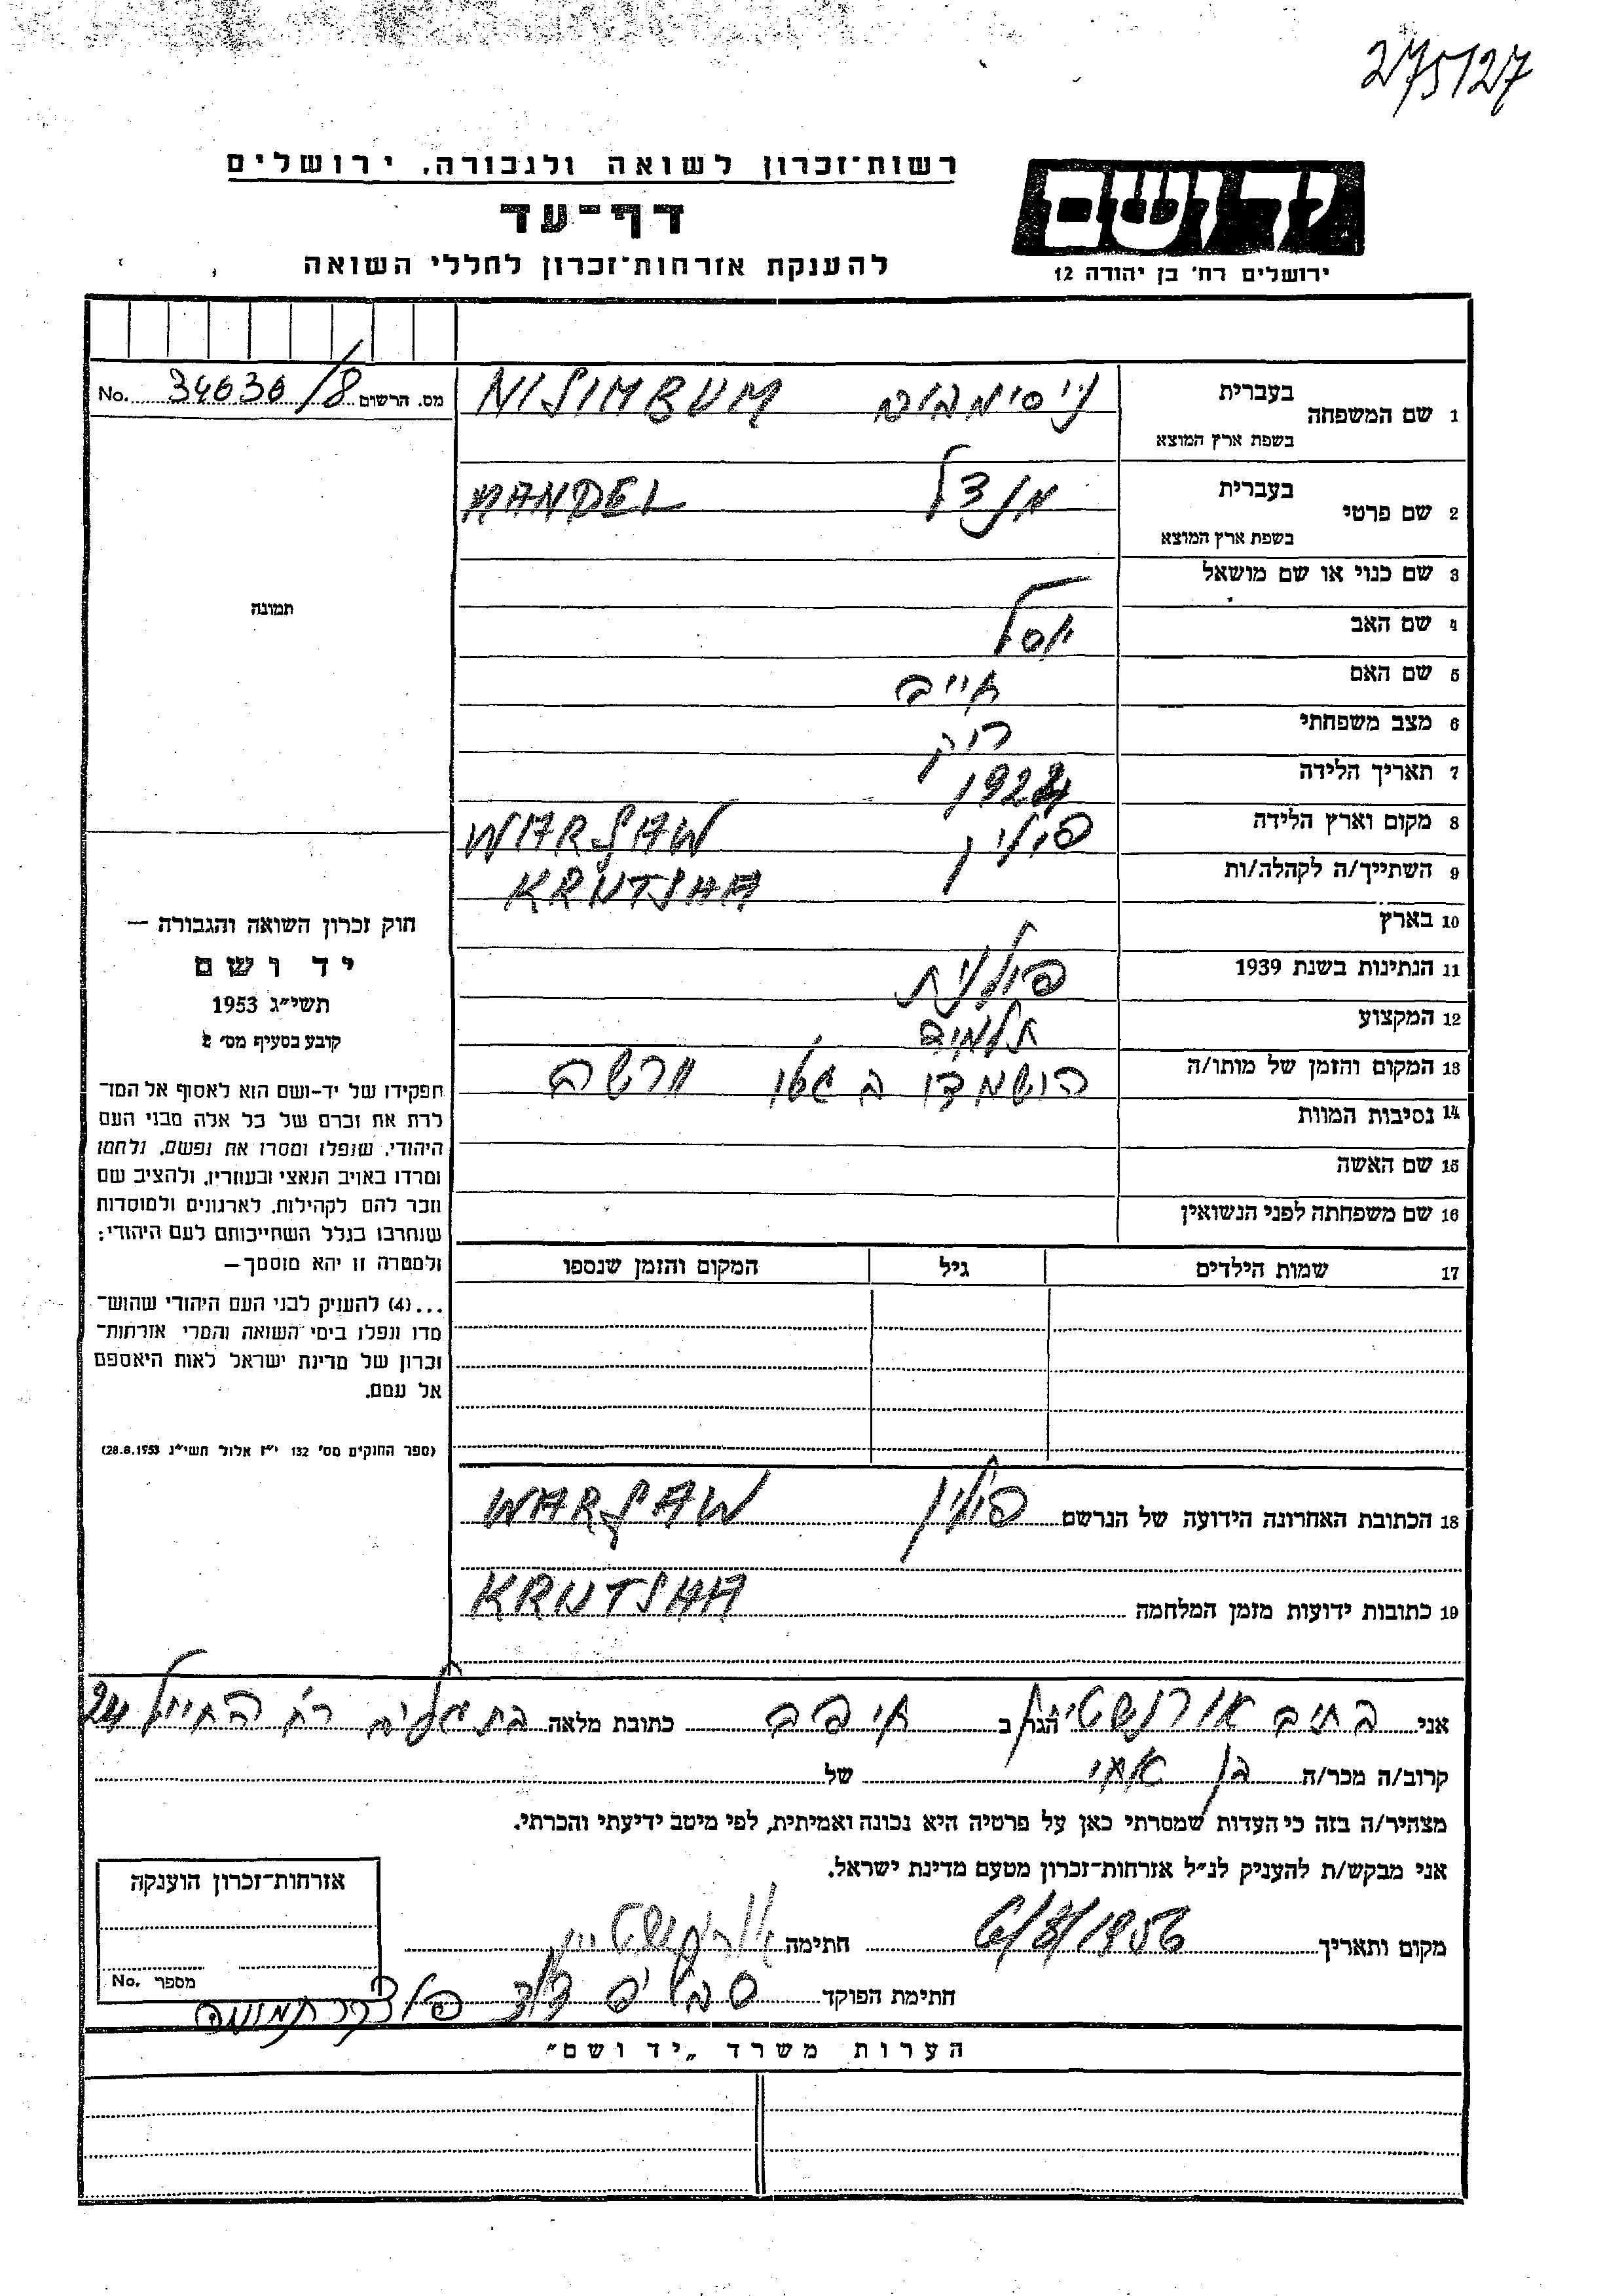 275127
רשות־זכרון לשואה ולגבורה, ירושלים
יד ושם
דף־עד
ירושלים רח' בן יהודה 12
להענקת אזרחות־זכרון לחללי השואה
מס. הרשום 34630/8 No.
1 שם המשפחה בעברית ניסימבוים NISIMBUM
בשפת ארץ המוצא
2 שם פרטי בעברית מנדל MANDEL
בשפת ארץ המוצא
3 שם כנוי או שם מושאל
4 שם האב יוסל
5 שם האם
6 מצב משפחתי רוק
7 תאריך הלידה
8 מקום וארץ הלידה פולין WARSAW
9 השתייך/ה לקהלה/ות KRUTSHA
10 בארץ
11 הנתינות בשנת 1939 פולנית
12 המקצוע תלמיד
13 המקום והזמן של מותו/ה הושמדו בגטו ורשה
14 נסיבות המוות
15 שם האשה
16 שם משפחתה לפני הנשואין
17 שמות הילדים גיל המקום והזמן שנספו
תמונה
חוק זכרון השואה והגבורה —
יד ושם
תשי"ג 1953
קובע בסעיף מס' 2
תפקידו של יד-ושם הוא לאסוף אל המו־
לדת את זכרם של כל אלה מבני העם
היהודי, שנפלו ומסרו את נפשם, נלחמו
ומרדו באויב הנאצי ובעוזריו, ולהציב שם
וזכר להם לקהילות, לארגונים ולמוסדות
שנחרבו בגלל השתייכותם לעם היהודי;
ולמטרה זו יהא מוסמך—
...(4) להעניק לבני העם היהודי שהוש־
מדו ונפלו בימי השואה והמרי אזרחות־
זכרון של מדינת ישראל לאות היאספם
אל עמם.
(ספר החוקים מס' 132 י"ז אלול תשי"ג 28.8.1953)
18 הכתובת האחרונה הידועה של הנרשם פולין WARSAW
19 כתובות ידועות מזמן המלחמה KRUTSHA
אני אורנשטיין הגר ב חיפה כתובת מלאה בת גלים רח' החייל 24
קרוב/ה מכר/ה בן אחי של
מצהיר/ה בזה כי העדות שמסרתי כאן על פרטיה היא נכונה ואמיתית, לפי מיטב ידיעתי והכרתי.
אני מבקש/ת להעניק לנ"ל אזרחות־זכרון מטעם מדינת ישראל.
מקום ותאריך 6/8/1956 חתימה אורנשטיין
חתימת הפוקד
אזרחות־זכרון הוענקה
מספר No.
הערות משרד „יד ושם"